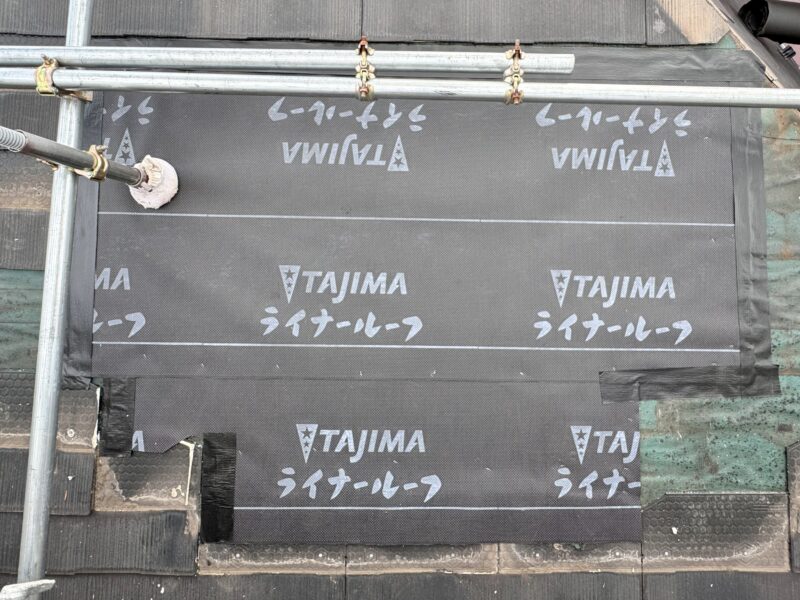 ライナールーフ ライナールーフ
TAJIMA TAJIMA
MA TAJIMA TAJIMA
ルーフ ライナールーフ ライナールーフ
A TAJIMA TAJ
ライナールーフ ライナール